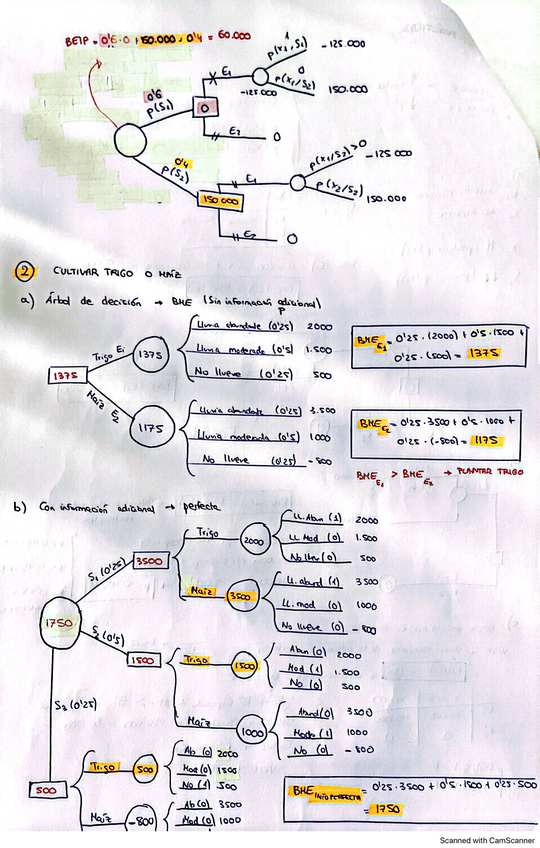 BEIP = 0'6·0 + 150.000·0'4 = 60.000
1
P(x1/S1)
-125.000
E1
0
P(x1/S2)
150.000
-125.000
0'6
P(S1)
0
E2
0
0'4
P(S2)
P(x1/S2)>0
-125.000
E1
P(x2/S2)
150.000
150.000
E2
0
2 CULTIVAR TRIGO O MAÍZ
a) Árbol de decisión → BME (Sin información adicional)
P
Lluvia abundante (0'25) 2000
Trigo E1
1375
Lluvia moderada (0'5) 1.500
No llueve (0'25) 500
1375
BME E1 = 0'25·(2000) + 0'5·1500 +
0'25·(500) = 1375
Maíz E2
1175
Lluvia abundate (0'25) 3.500
Lluvia moderada (0'5) 1000
No llueve (0'25) -800
BME E2 = 0'25·3500 + 0'5·1000 +
0'25·(-800) = 1175
BME E1 > BME E2 → PLANTAR TRIGO
b) Con información adicional → perfecta
S1 (0'25)
3500
Trigo
2000
LL.Abun (1) 2000
LL Mod (0) 1.500
No llev (0) 500
Maíz
3500
LL.abund (1) 3500
LL.mod (0) 1000
No llueve (0) -800
1750
S2 (0'5)
1500
Trigo
1500
Abun (0) 2000
Mod (1) 1.500
No (0) 500
Maíz
1000
Abund (0) 3500
Mode (1) 1000
No (0) -800
S3 (0'25)
500
Trigo
500
Ab (0) 2000
Mod (0) 1500
No (1) 500
Maíz
-800
Ab (0) 3500
Mod (0) 1000
BME INFO PERFECTA = 0'25·3500 + 0'5·1500 + 0'25·500
= 1750
Scanned with CamScanner